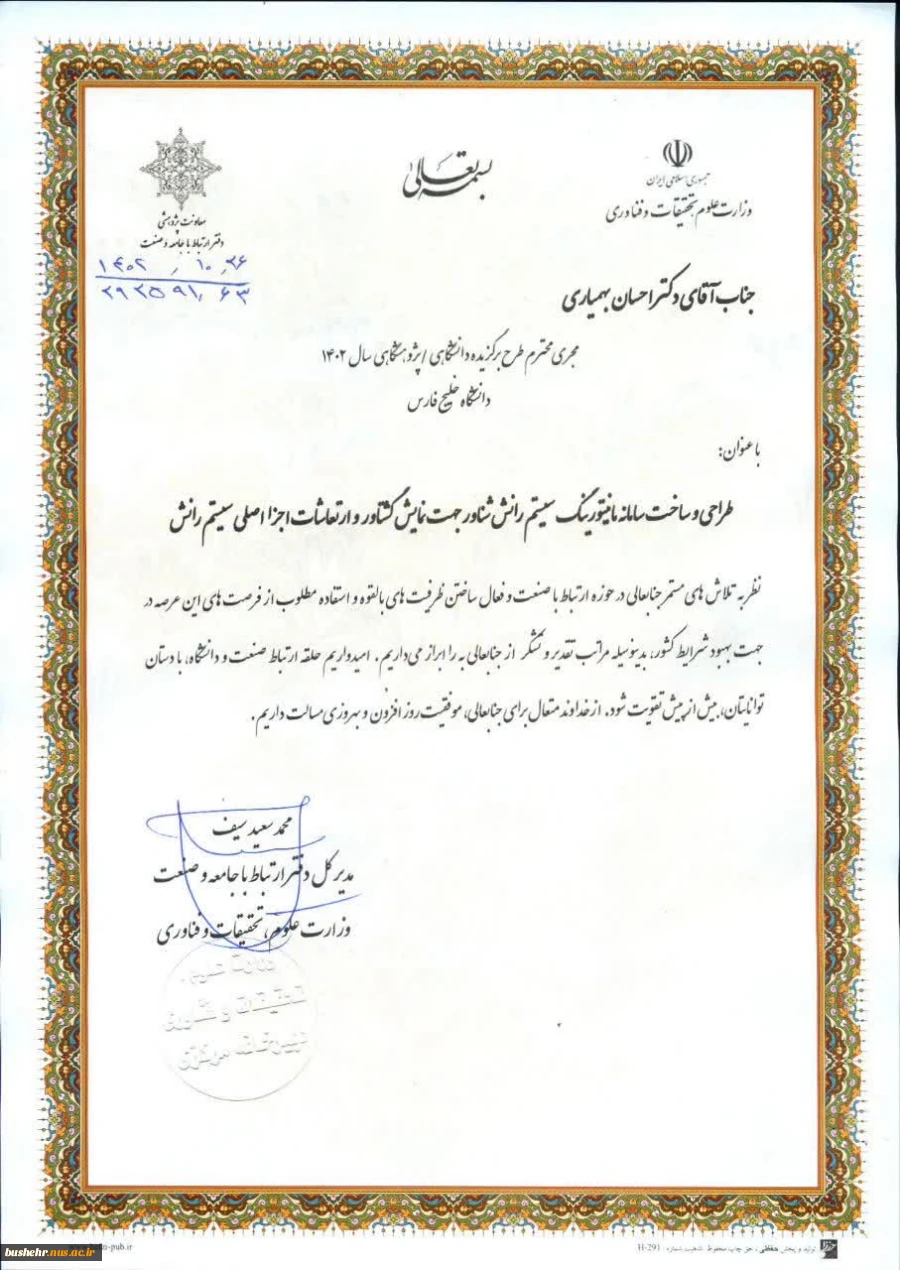 بسمه تعالی
جمهوری اسلامی ایران
وزارت علوم تحقیقات و فناوری
معاونت پژوهشی
دفتر ارتباط با جامعه و صنعت
۱۴۰۲/۱۰/۲۶
۲۹۲۵۹۱/۶۳
جناب آقای دکتر احسان بهمیاری
مجری محترم طرح برگزیده دانشگاهی / پژوهشگاهی سال ۱۴۰۲
دانشگاه خلیج فارس
با عنوان:
طراحی و ساخت سامانه مانیتورینگ سیستم رانش شناور جهت نمایش گشتاور و ارتعاشات اجزا اصلی سیستم رانش
نظر به تلاش های مستمر جنابعالی در حوزه ارتباط با صنعت و فعال ساختن ظرفیت های بالقوه و استفاده مطلوب از فرصت های این عرصه در
جهت بهبود شرایط کشور، بدینوسیله مراتب تقدیر و تشکر از جنابعالی به را ابراز می‌داریم. امیدواریم حلقه ارتباط صنعت و دانشگاه، با دستان
توانایتان، بیش از پیش تقویت شود. از خداوند متعال برای جنابعالی، موفقیت روز افزون و بهروزی مسالت داریم.
محمد سعید سیف
مدیر کل دفتر ارتباط با جامعه و صنعت
وزارت علوم، تحقیقات و فناوری
وزارت علوم
تحقیقات و فناوری
تولید و پخش حفظی، حق چاپ محفوظ شماره: H-291
bushehr.nus.ac.ir
-pub.ir